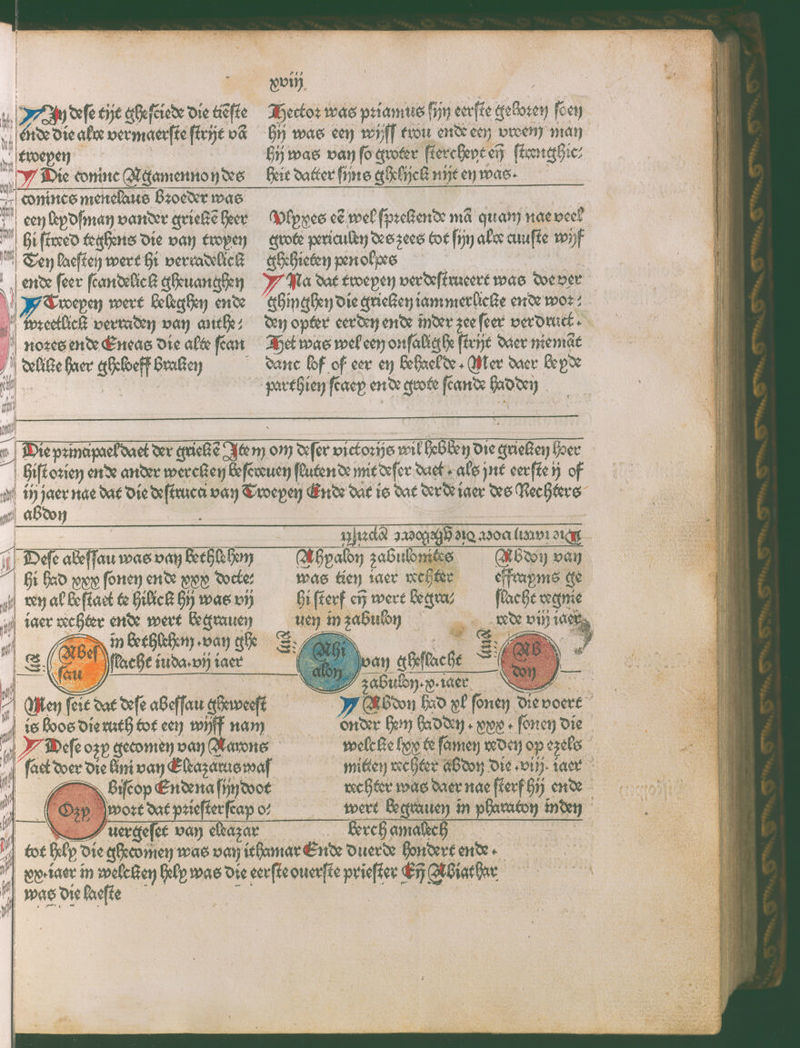 xviij
In dese tijt ghesciede die tiēste
ende die alre vermaerste strijt vā
troeyen
Die coninc Agamennon des
conincs menelaus broeder was
een leydsman vander griekē heer
hi streed teghens die van troyen
Ten laesten wert hi verradelick
ende seer scandelick gheuanghen
Troeyen wert beleghen ende
wreetlick verraden van anthe⸗
nores ende Eneas die alte scan
delike haer gheloeff braken
Hector was priamus sijn eerste geboren soen
hij was een wijff trou ende een vroem man
hij was van so groter stercheyt eñ strenghic⸗
heit datter sijns ghelijck nijt en was.
Vlyxes eē wel sprekende mā quam nae veel
grote periculen des zees tot sijn alre cuuste wijf
ghehieten penolpes
Na dat troeyen verdestrueert was doe ver
ghinghen die grieken iammerlicke ende wor⸗
den opter eerden ende inder zee seer verdruct.
Het was wel een onsalighe strijt daer niemāt
danc lof of eer en behaelde. Mer daer beyde
parthien scaey ende grote scande hadden
Die principael daet der griekē Item om deser victorijs wil hebben die grieken hoer
historien ende ander wercken bescreuen slutende mit deser daet. als int eerste ij of
iij jaer nae dat die destrucci van Troeyen Ende dat is dat derde iaer des Rechters
abdon
Dese abessau was van bethlehem
hi had xxx sonen ende xxx docte⸗
ren al bestaet te hilick hij was vij
iaer rechter ende wert begrauen
in bethlehem. van ghe
slacht iuda. vij iaer
Abes
sau
Ahyalon zabulonites
was tien iaer rechter
hi sterf eñ wert begra⸗
uen in zabulon
Ahi
alon
van gheslacht
zabulon. x. iaer
Abdon van
effrayms ge
slacht regnie
rede viij iaer
Ab
don
Men seit dat dese abessau gheweest
is boos die ruth tot een wijff nam
Dese ozy gecomen van Aarons
saet doer die lini van Eleazarus was
biscop Ende na sijn doot
wort dat priesterscap o⸗
uergeset van eleazar
Ozy
Abdon had xl sonen die voert
onder hem hadden. xxx. sonen die
welcke lxx te samen reden op ezels
mitten rechter abdon die. viij. iaer
rechter was daer nae sterf hij ende
wert begrauen in pharaton inden
berch amalech
tot hely die ghecomen was van ithamar Ende duerde hondert ende.
xx. iaer in welcken hely was die eerste ouerste priester Eñ Abiathar
was die laeste